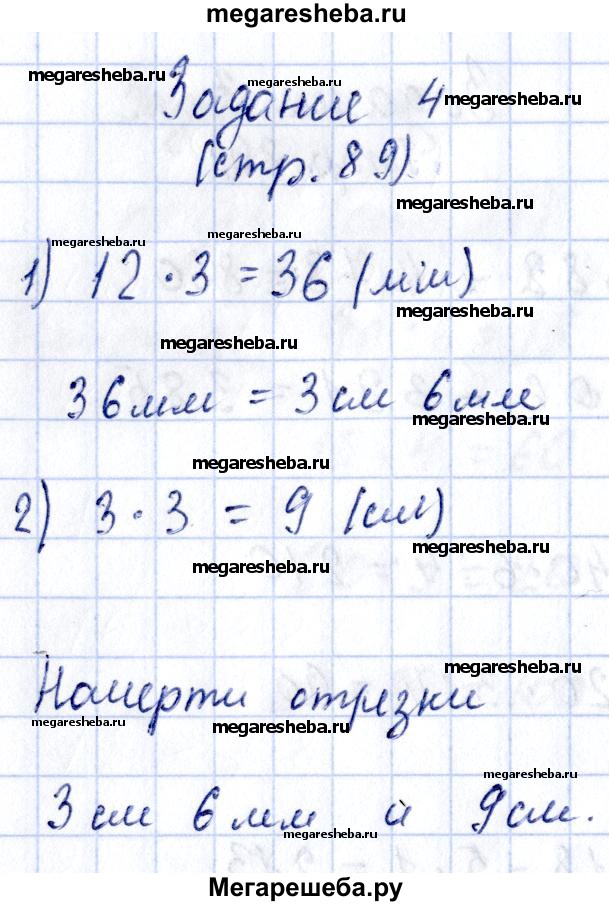 megaresheba.ru
megaresheba.ru megaresheba.ru
Задание 4 megaresheba.ru
(стр. 89)
megaresheba.ru
megaresheba.ru megaresheba.ru
1) 12 · 3 = 36 (мм)
megaresheba.ru
megaresheba.ru
36 мм = 3 см 6 мм
megaresheba.ru
megaresheba.ru
2) 3 · 3 = 9 (см)
megaresheba.ru
megaresheba.ru
megaresheba.ru
Начерти отрезки
megaresheba.ru megaresheba.ru
megaresheba.ru
3 см 6 мм и 9 см.
megaresheba.ru
Мегарешеба.ру